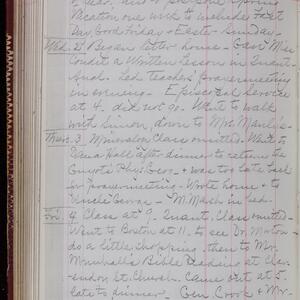 Vacation one wish to include Fast
Day, Good Friday + Easter - Sunday -
Wed. 2. Began letter home - Gave Miss
Condit a Written Lesson in Quant.
Anal. Led Teachers' prayermeeting
in evening - Episcopal Service
at 4. did not go. Went to walk
with Simon, down to Mrs. Manly's -
Thurs. 3. Mineralog Class omitted. Went to
Dana Hall after dinner to return the
Guyot's Phys. Geog. + was too late back
for prayermeeting - Wrote home + to
Uncle George - M. Mash in bed.
Fri. 4. Class at 9. Quant. Class omitted -
Went to Boston at 11. to see Dr.
do a little shopping, then to Mr.
Bible Reading at Clar-
endon St. Church. Came out at 5.
late to dinner - Gen. Crook + Mr.